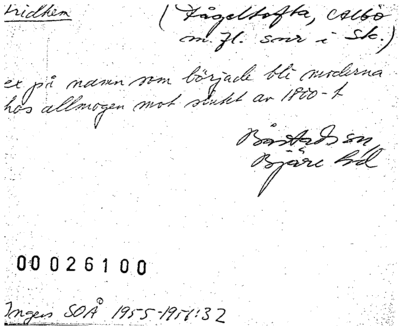 Fridhem
(Fågeltofta, Albo
m. fl. snr i Sk.)
ex på namn som började bli moderna
hos allmogen mot slutet av 1800-t
Båstads sn,
Bjäre hd
00026100
Ingers SOÅ 1955-1956:32